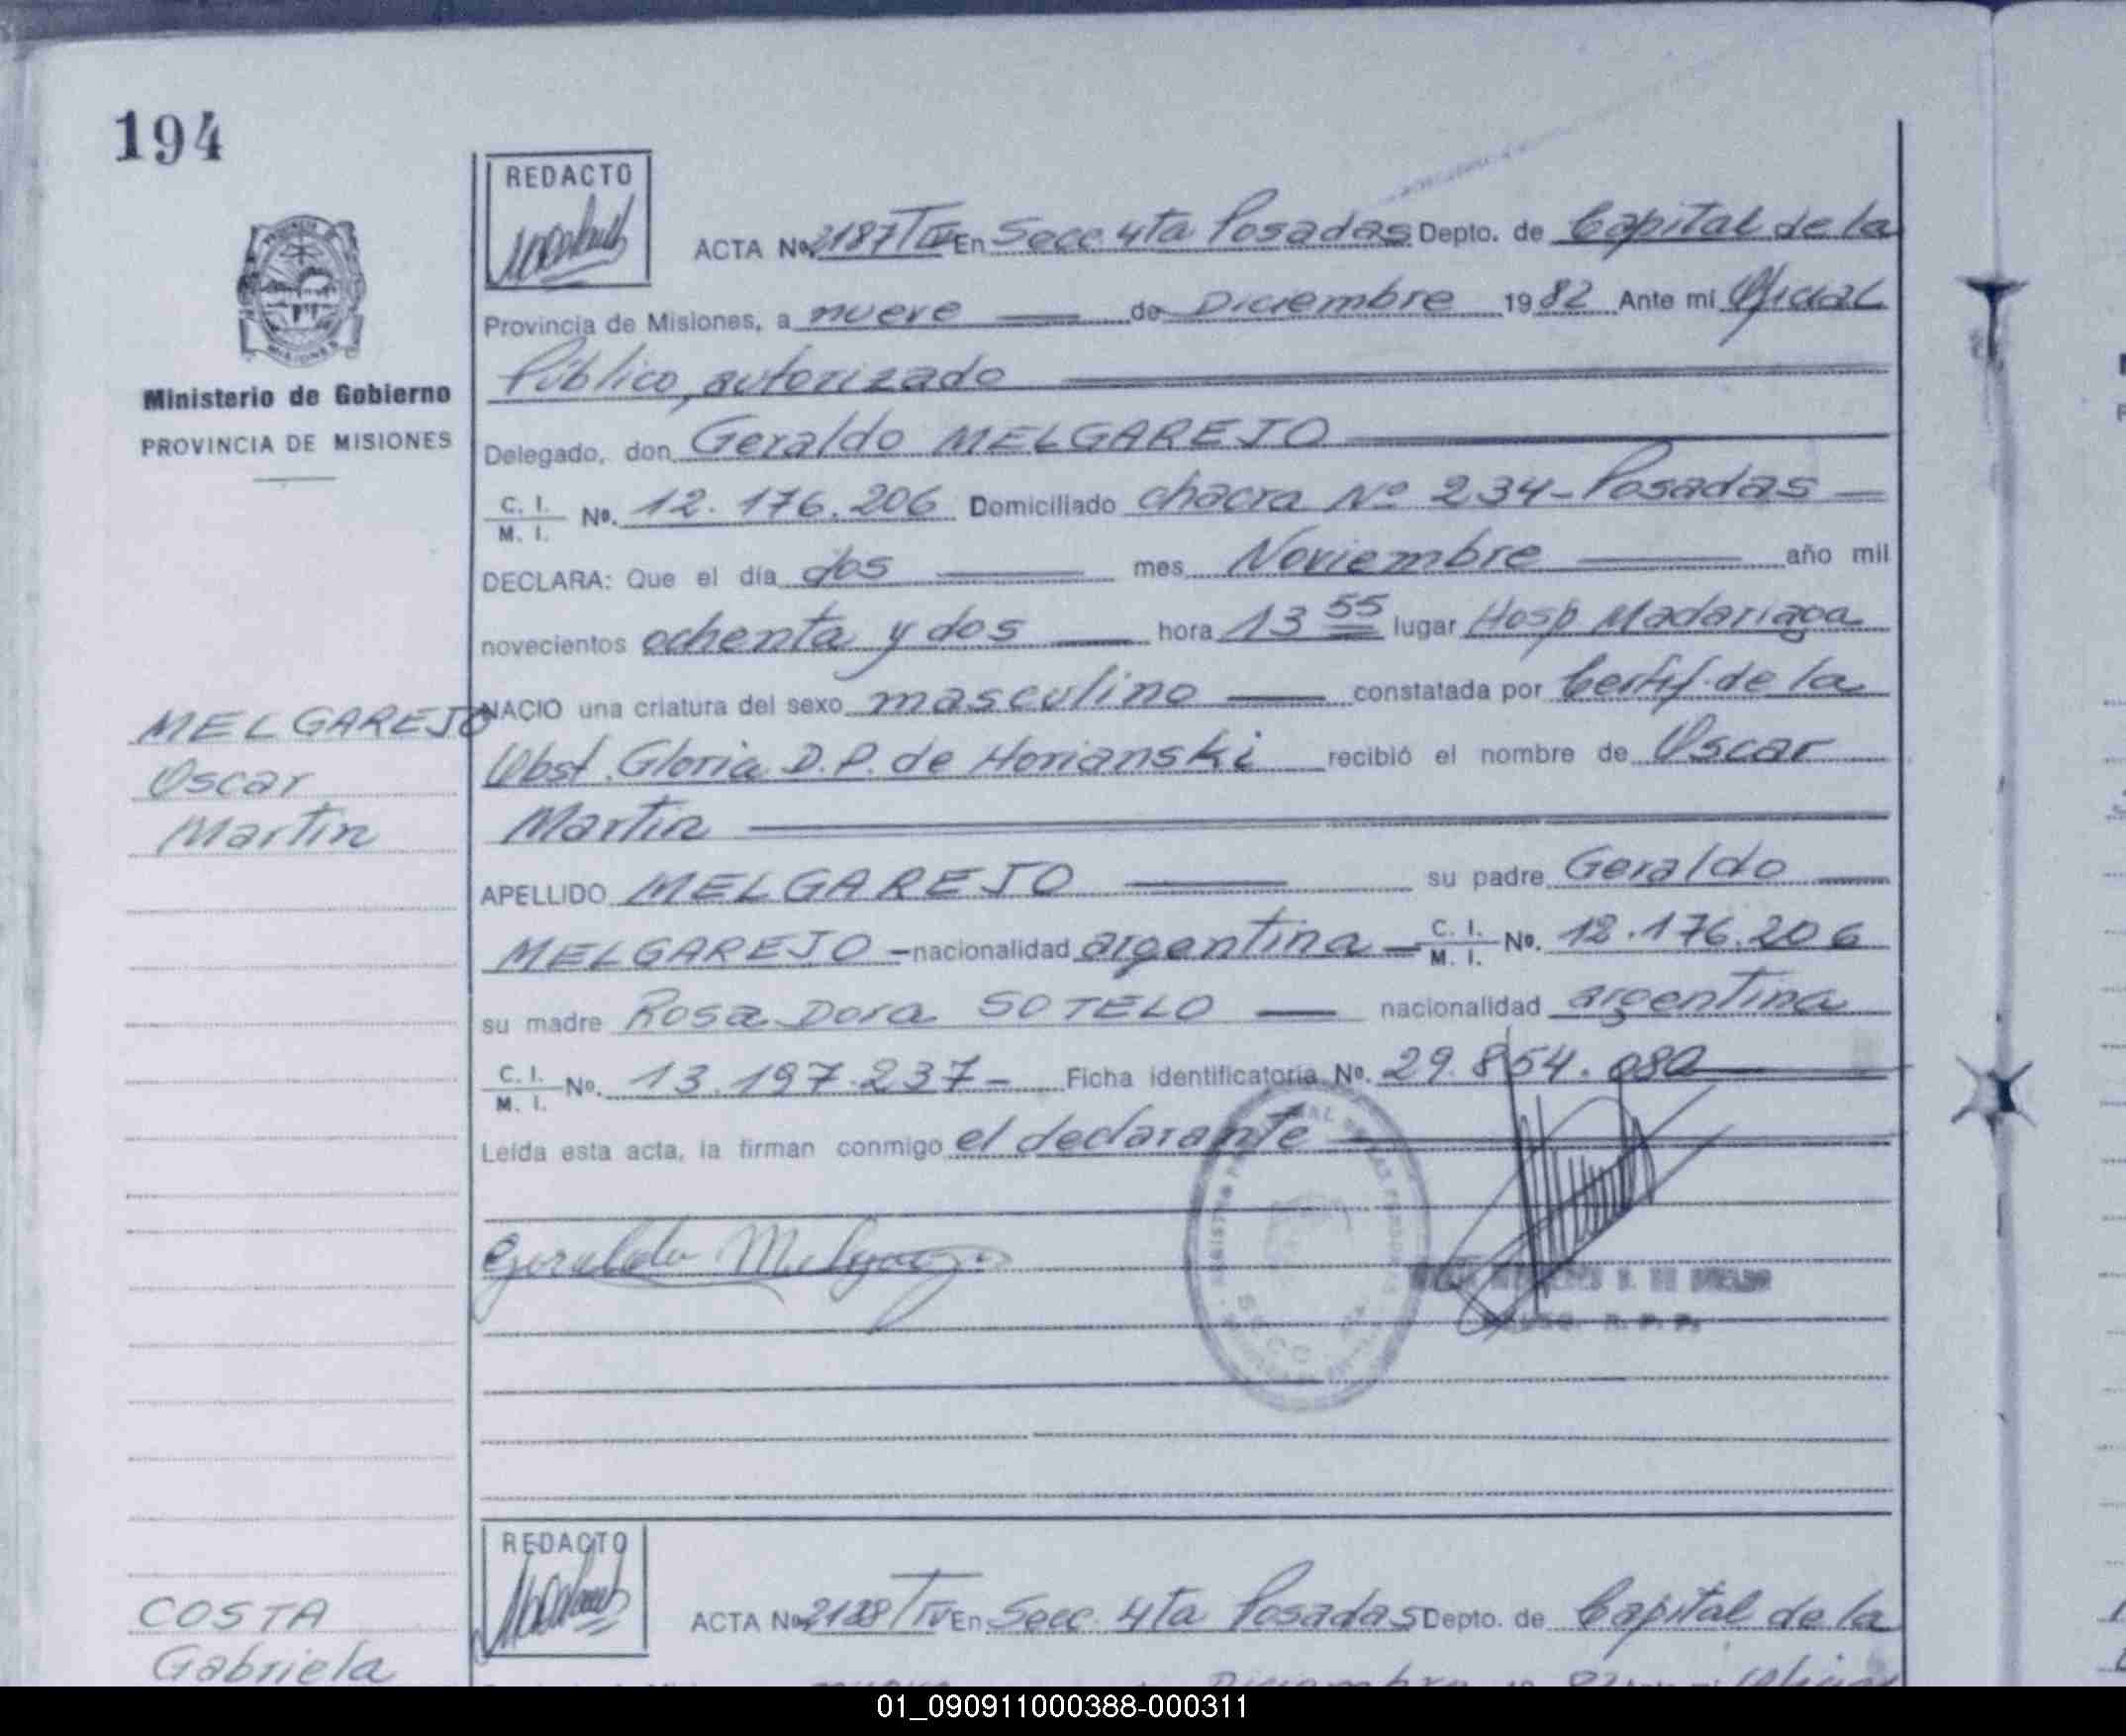 194
REDACTO
ACTA Nº 2187/T IV En Secc 4ta Posadas Depto. de Capital de la
Provincia de Misiones, a nueve de Diciembre 1982 Ante mi Oficial
Público, autorizado
Ministerio de Gobierno
PROVINCIA DE MISIONES
Delegado, don Geraldo MELGAREJO
C. I. M. I. Nº. 12.176.206 Domiciliado chacra Nº 234 - Posadas
DECLARA: Que el día dos mes Noviembre año mil
novecientos ochenta y dos hora 13 55 lugar Hosp Madariaga
NACIO una criatura del sexo masculino constatada por Certif. de la
Obst. Gloria D.P. de Horianski recibió el nombre de Oscar
Martin
MELGAREJO
Oscar
Martin
APELLIDO MELGAREJO su padre Geraldo
MELGAREJO - nacionalidad argentina - C. I. M. I. Nº. 12.176.206
su madre Rosa Dora SOTELO nacionalidad argentina
C. I. M. I. Nº. 13.197.237 - Ficha identificatoria Nº. 29.854.080
Leída esta acta, la firman conmigo el declarante
Geraldo Melgarejo
R. P. P.
REDACTO
ACTA Nº 2188/T IV En Secc. 4ta Posadas Depto. de Capital de la
COSTA
Gabriela
01_090911000388-000311